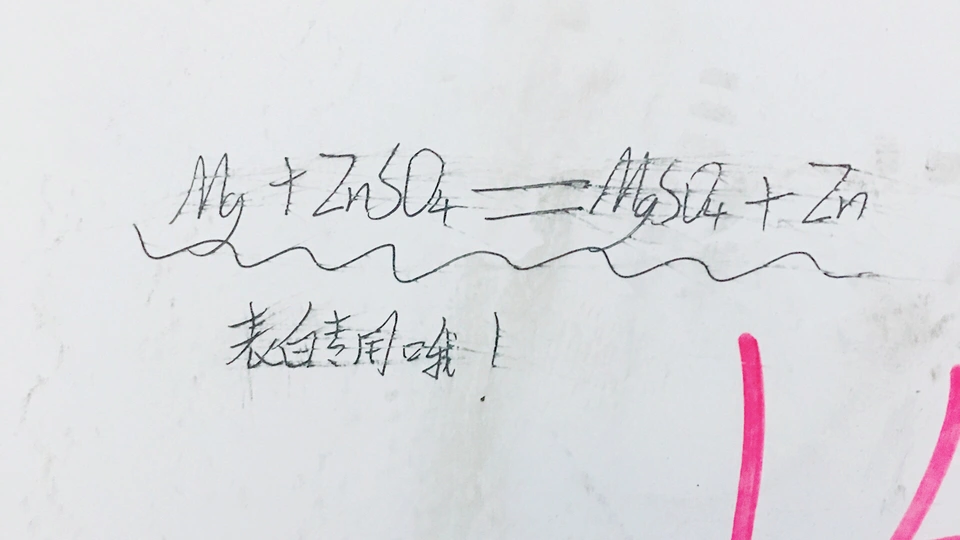 Mg+ZnSO₄=MgSO₄+Zn
表白专用哦！